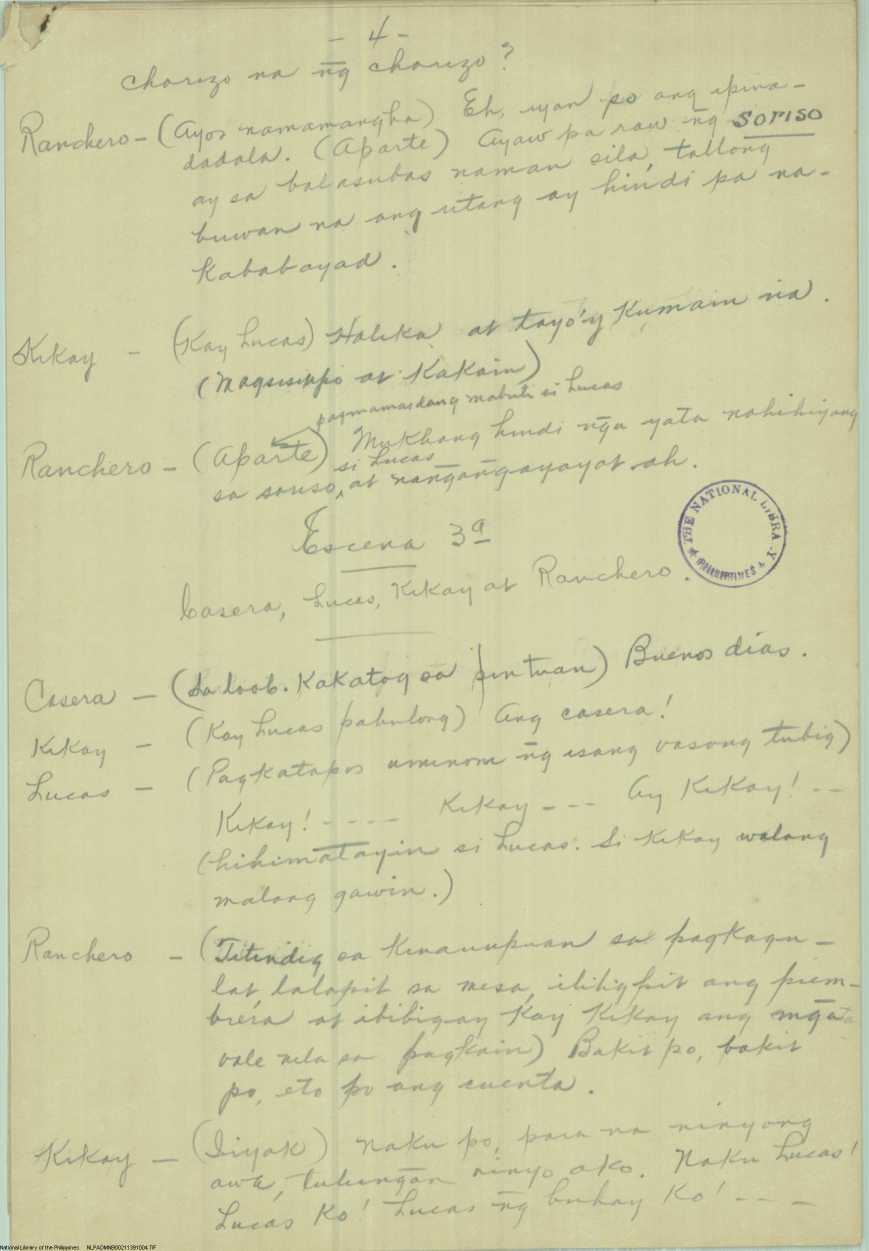 - 4 -
chorizo na n̄g chorizo?
Ranchero - (Ayos namamangha) Eh, iyan po ang ipina-
dadala. (Aparte) Ayaw pa raw n̄g soriso
ay sa balasubas naman sila, tatlong
buwan na ang utang ay hindi pa na-
kababayad.
Kikay - (Kay Lucas) Halika at tayo'y kumain na.
(Magsisiupo at kakain)
pagmamasdang mabuti si Lucas
Ranchero - (Aparte) Mukhang hindi n̄ga yata nahihiyang
si Lucas
sa soriso, at nan̄gan̄gayayat ah.
Escena 3ª
Casera, Lucas, Kikay at Ranchero.
THE NATIONAL LIBRARY PHILIPPINES
Casera - (Sa loob. Kakatog sa pintuan) Buenos días.
Kikay - (Kay Lucas pabulong) Ang casera!
Lucas - (Pagkatapos uminom n̄g isang vasong tubig)
Kikay! - - - - Kikay - - - Ay Kikay! - -
(hihimatayin si Lucas. Si Kikay walang
malang gawin.)
Ranchero - (Titindig sa kinauupuan sa pagkagu-
lat lalapit sa mesa, ililigpit ang fiam-
brera at ibibigay kay Kikay ang mn̄ga
vale nila sa pagkain) Bakit po, bakit
po, eto po ang cuenta.
Kikay - (Iiyak) Naku po, para na ninyong
awa, tulun̄gan ninyo ako. Naku Lucas!
Lucas ko! Lucas n̄g buhay ko! - - -
National Library of the Philippines NLPADMNB00211391004.TIF